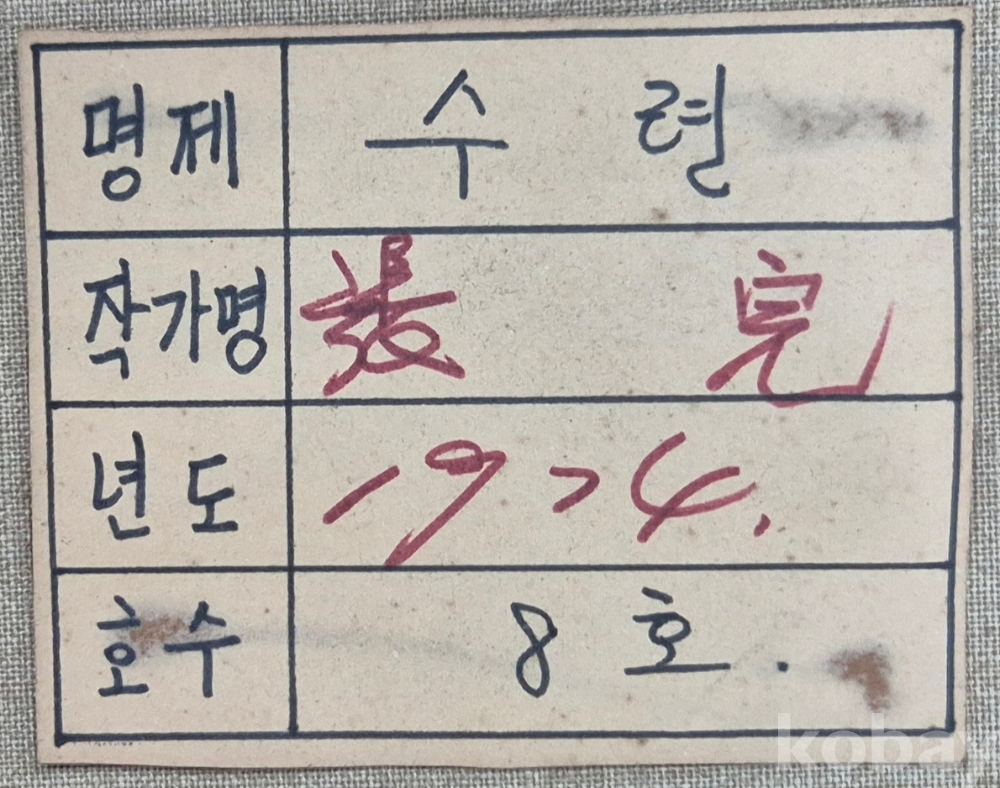 명제 수련
작가명 張 完
년도 1974.
호수 8호.
koba